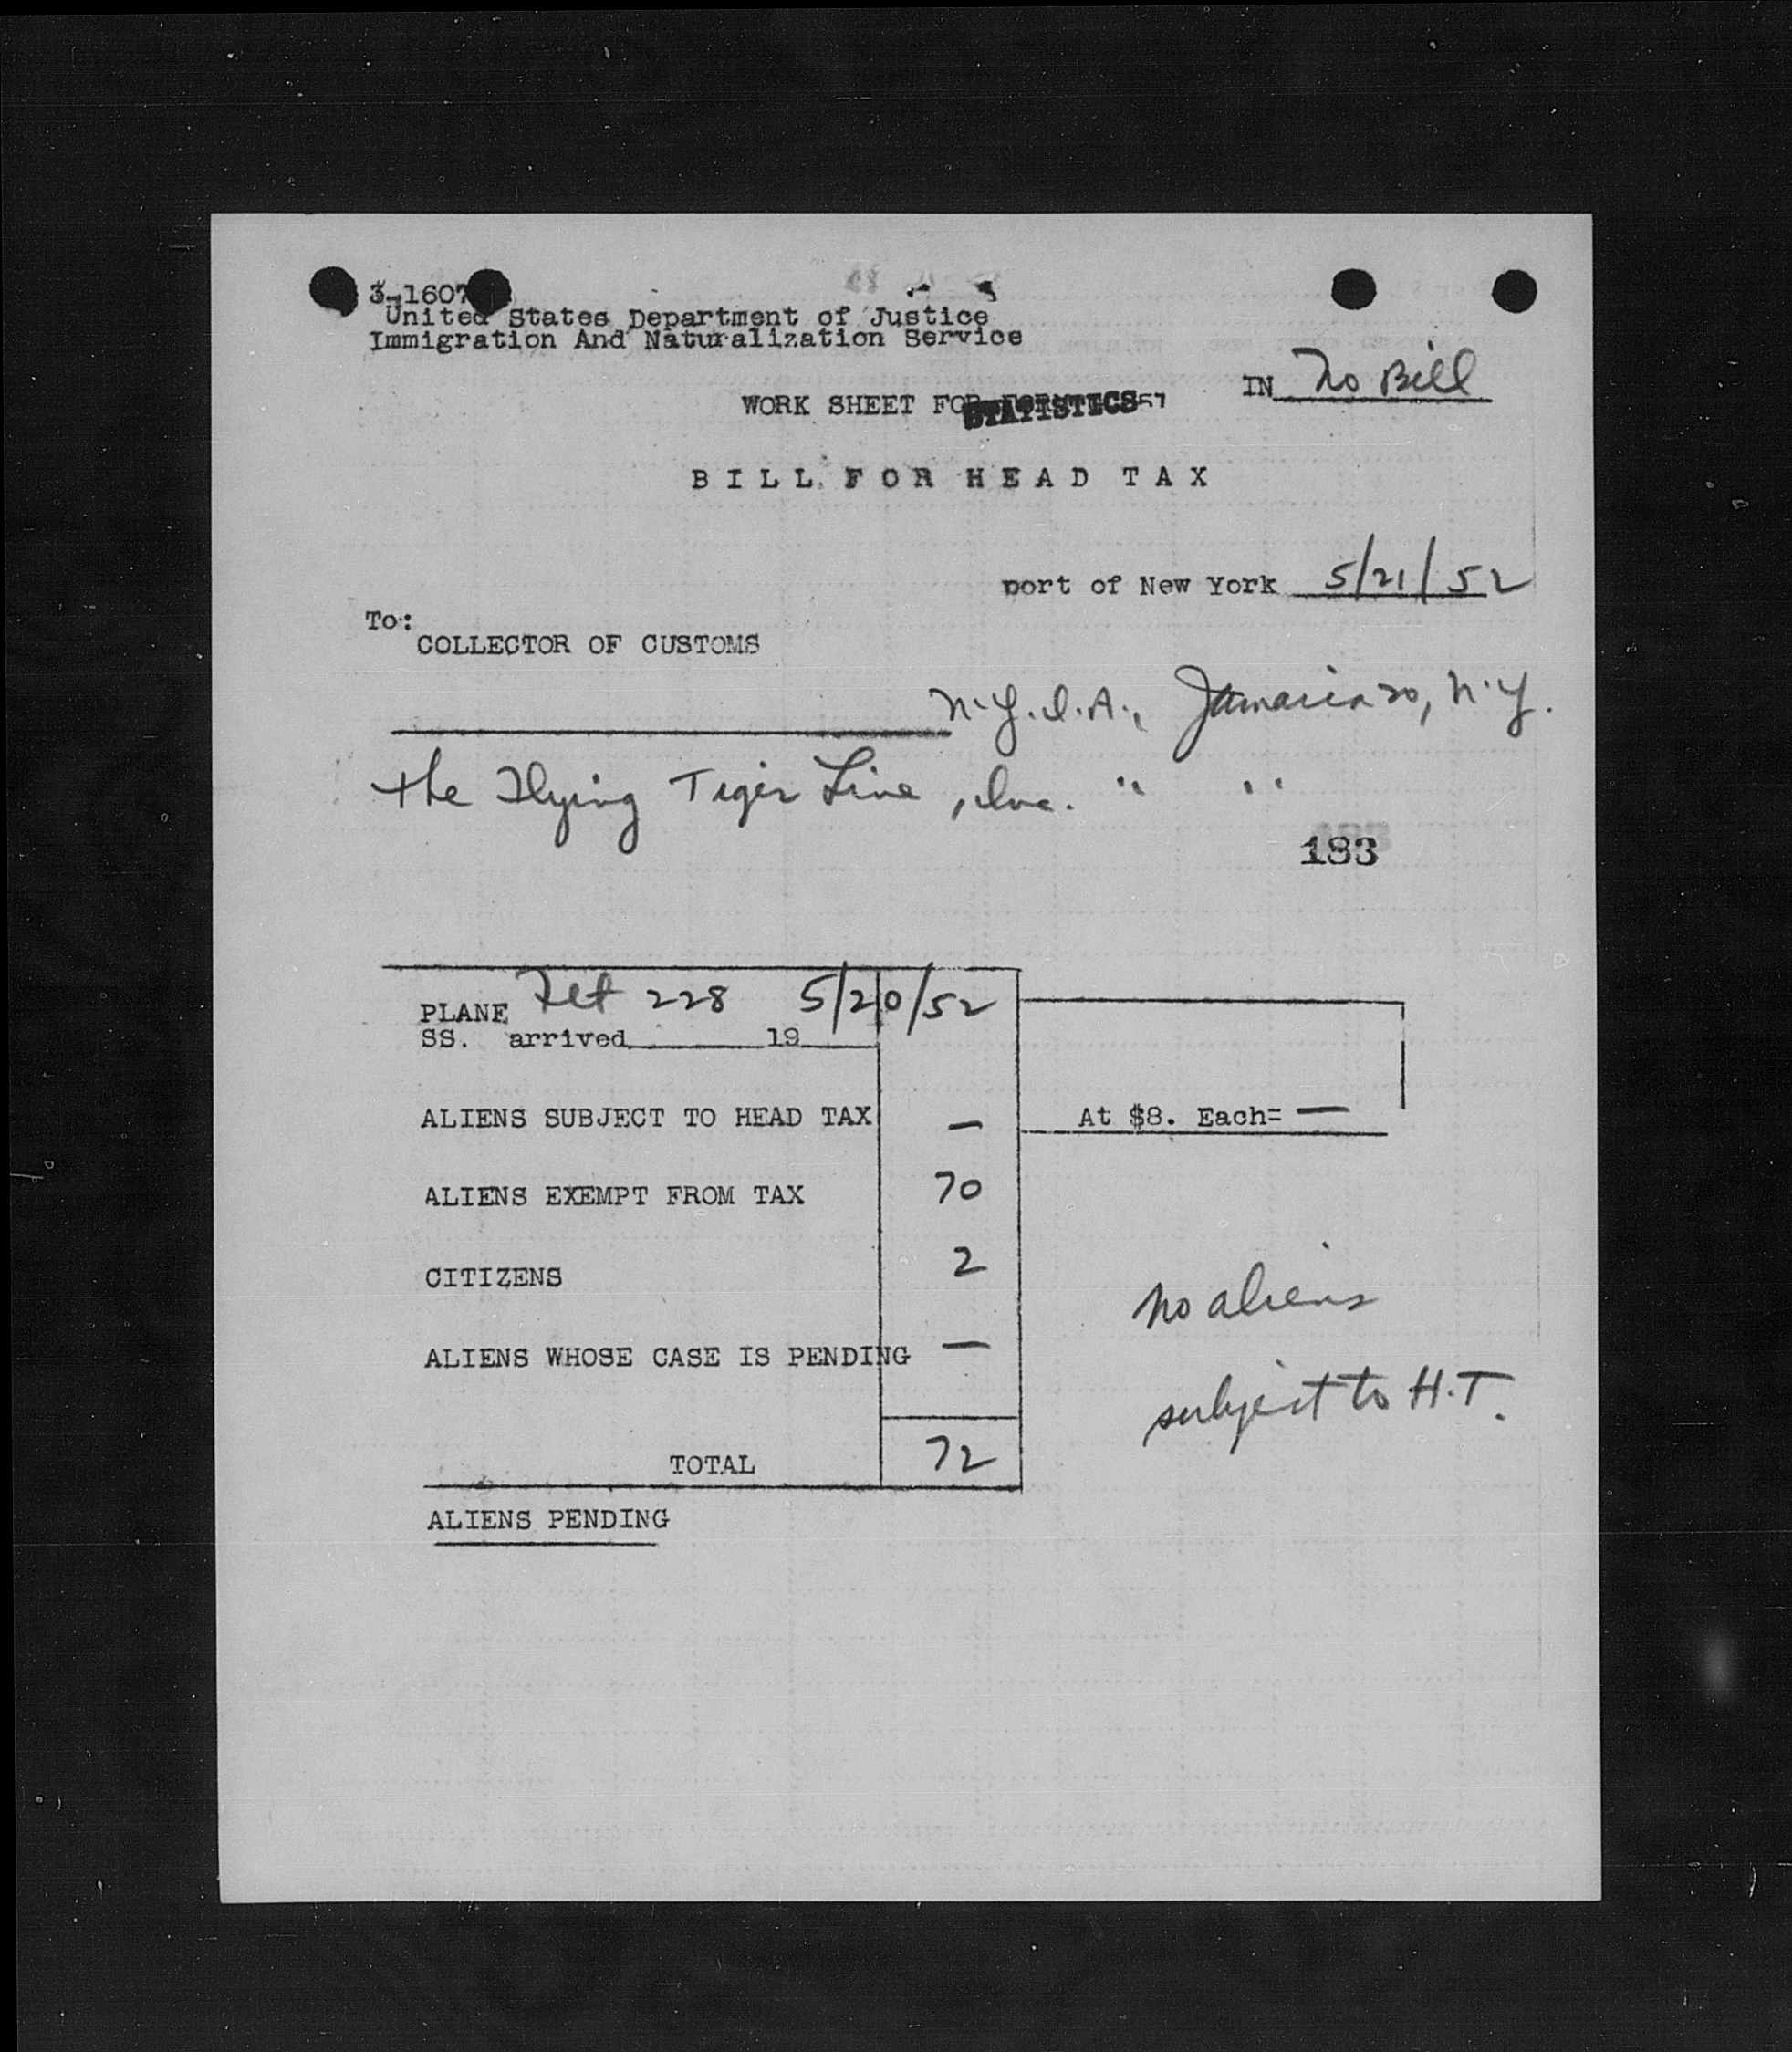 3-1607
United States Department of Justice
Immigration And Naturalization Service
IN No Bill
WORK SHEET FOR STATISTICS 57
BILL FOR HEAD TAX
port of New York 5/21/52
To:
COLLECTOR OF CUSTOMS
N.Y.I.A., Jamaica 20, N.Y.
The Flying Tiger Line, Inc. " "
183
PLANE Flt 228 5/20/52
SS. arrived 19
ALIENS SUBJECT TO HEAD TAX — At $8. Each= —
ALIENS EXEMPT FROM TAX 70
CITIZENS 2
no aliens
ALIENS WHOSE CASE IS PENDING —
subject to H.T.
TOTAL 72
ALIENS PENDING